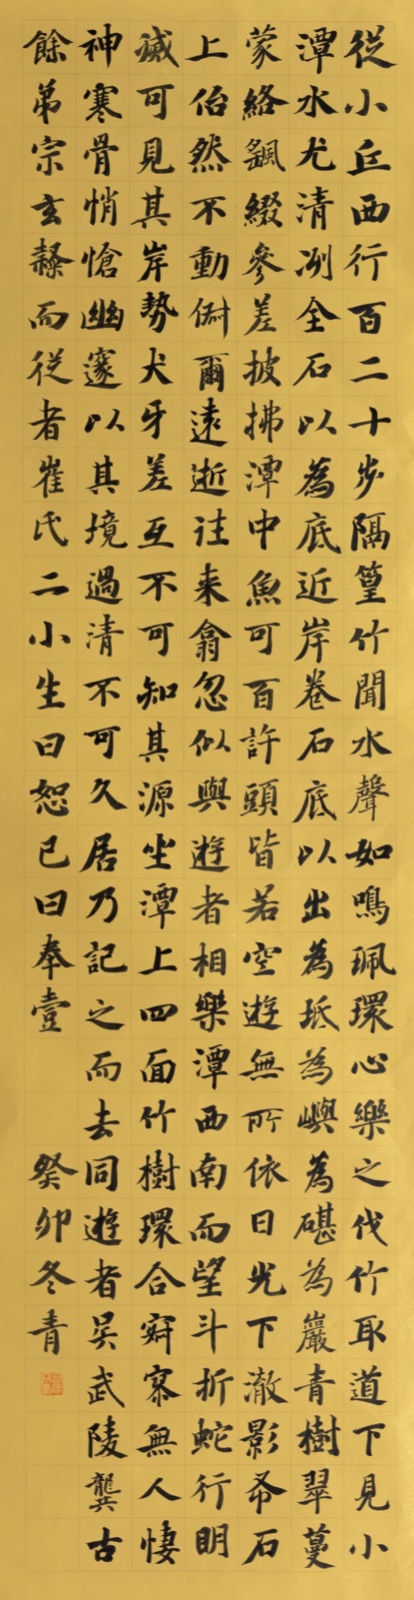 從小丘西行百二十步隔篁竹聞水聲如鳴珮環心樂之伐竹取道下見小
潭水尤清冽全石以為底近岸卷石底以出為坻為嶼為嵁為巖青樹翠蔓
蒙絡飄綴參差披拂潭中魚可百許頭皆若空遊無所依日光下澈影布石
上佁然不動俶爾遠逝往来翕忽似與遊者相樂潭西南而望斗折蛇行明
滅可見其岸勢犬牙差互不可知其源坐潭上四面竹樹環合寂寥無人悽
神寒骨悄愴幽邃以其境過清不可久居乃記之而去同遊者吳武陵龔古
餘弟宗玄隸而從者崔氏二小生曰恕己曰奉壹
癸卯冬青